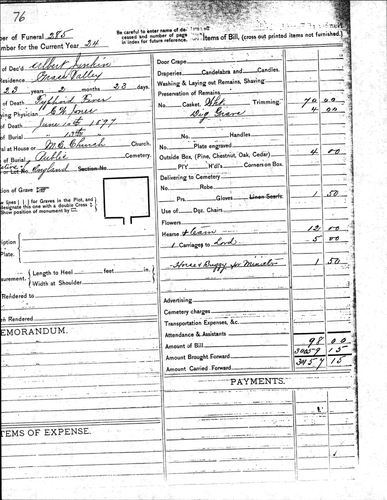 76
ber of Funeral 285
umber for the Current Year 24
Be carefully to enter name of de-
ceased and number of page
in index for future reference.
Items of Bill, (cross out printed items not furnished.)
of Dec'd Albert Jenkin
Residence Grass Valley
23 years 2 months 23 days.
of Death Typhoid Fever
ying Physician C. W. Jones
of Death June 10th 1897
of Burial " 13th "
al at House or M.E. Church Church.
of Burial Public Cemetery.
England Section No.
ition of Grave
lines ( | | ) for Graves in the Plot, and
designate this one with a double Cross
Show position of monument by
iption
Plate.
asurement. Length to Heel feet in.
Width at Shoulder
Rendered to
th Rendered to
EMORANDUM.
TEMS OF EXPENSE.
Door Crape
Draperies Candelabra and Candles.
Washing & Laying out Remains, Shaving
Preservation of Remains
No. Casket, Trimming, 70 00
Dug Grave 4 00
No. Handles
Plate engraved
Outside Box, (Pine, Chestnut, Oak, Cedar) 4 00
H'd'l's Corners on Box.
Delivering to Cemetery
No. Robe
Prs. Gloves Linen Scarfs 1 50
Use of Doz. Chairs
Flowers
Hearse & team 12 00
1 Carriages to Lord 5 00
Horse & Buggy for Minister 1 50
Advertising
Cemetery charges
Transportation Expenses, &c.
Attendance & Assistants
Amount of Bill 98 00
Amount Brought Forward 3059 15
Amount Carried Forward 3157 15
PAYMENTS.